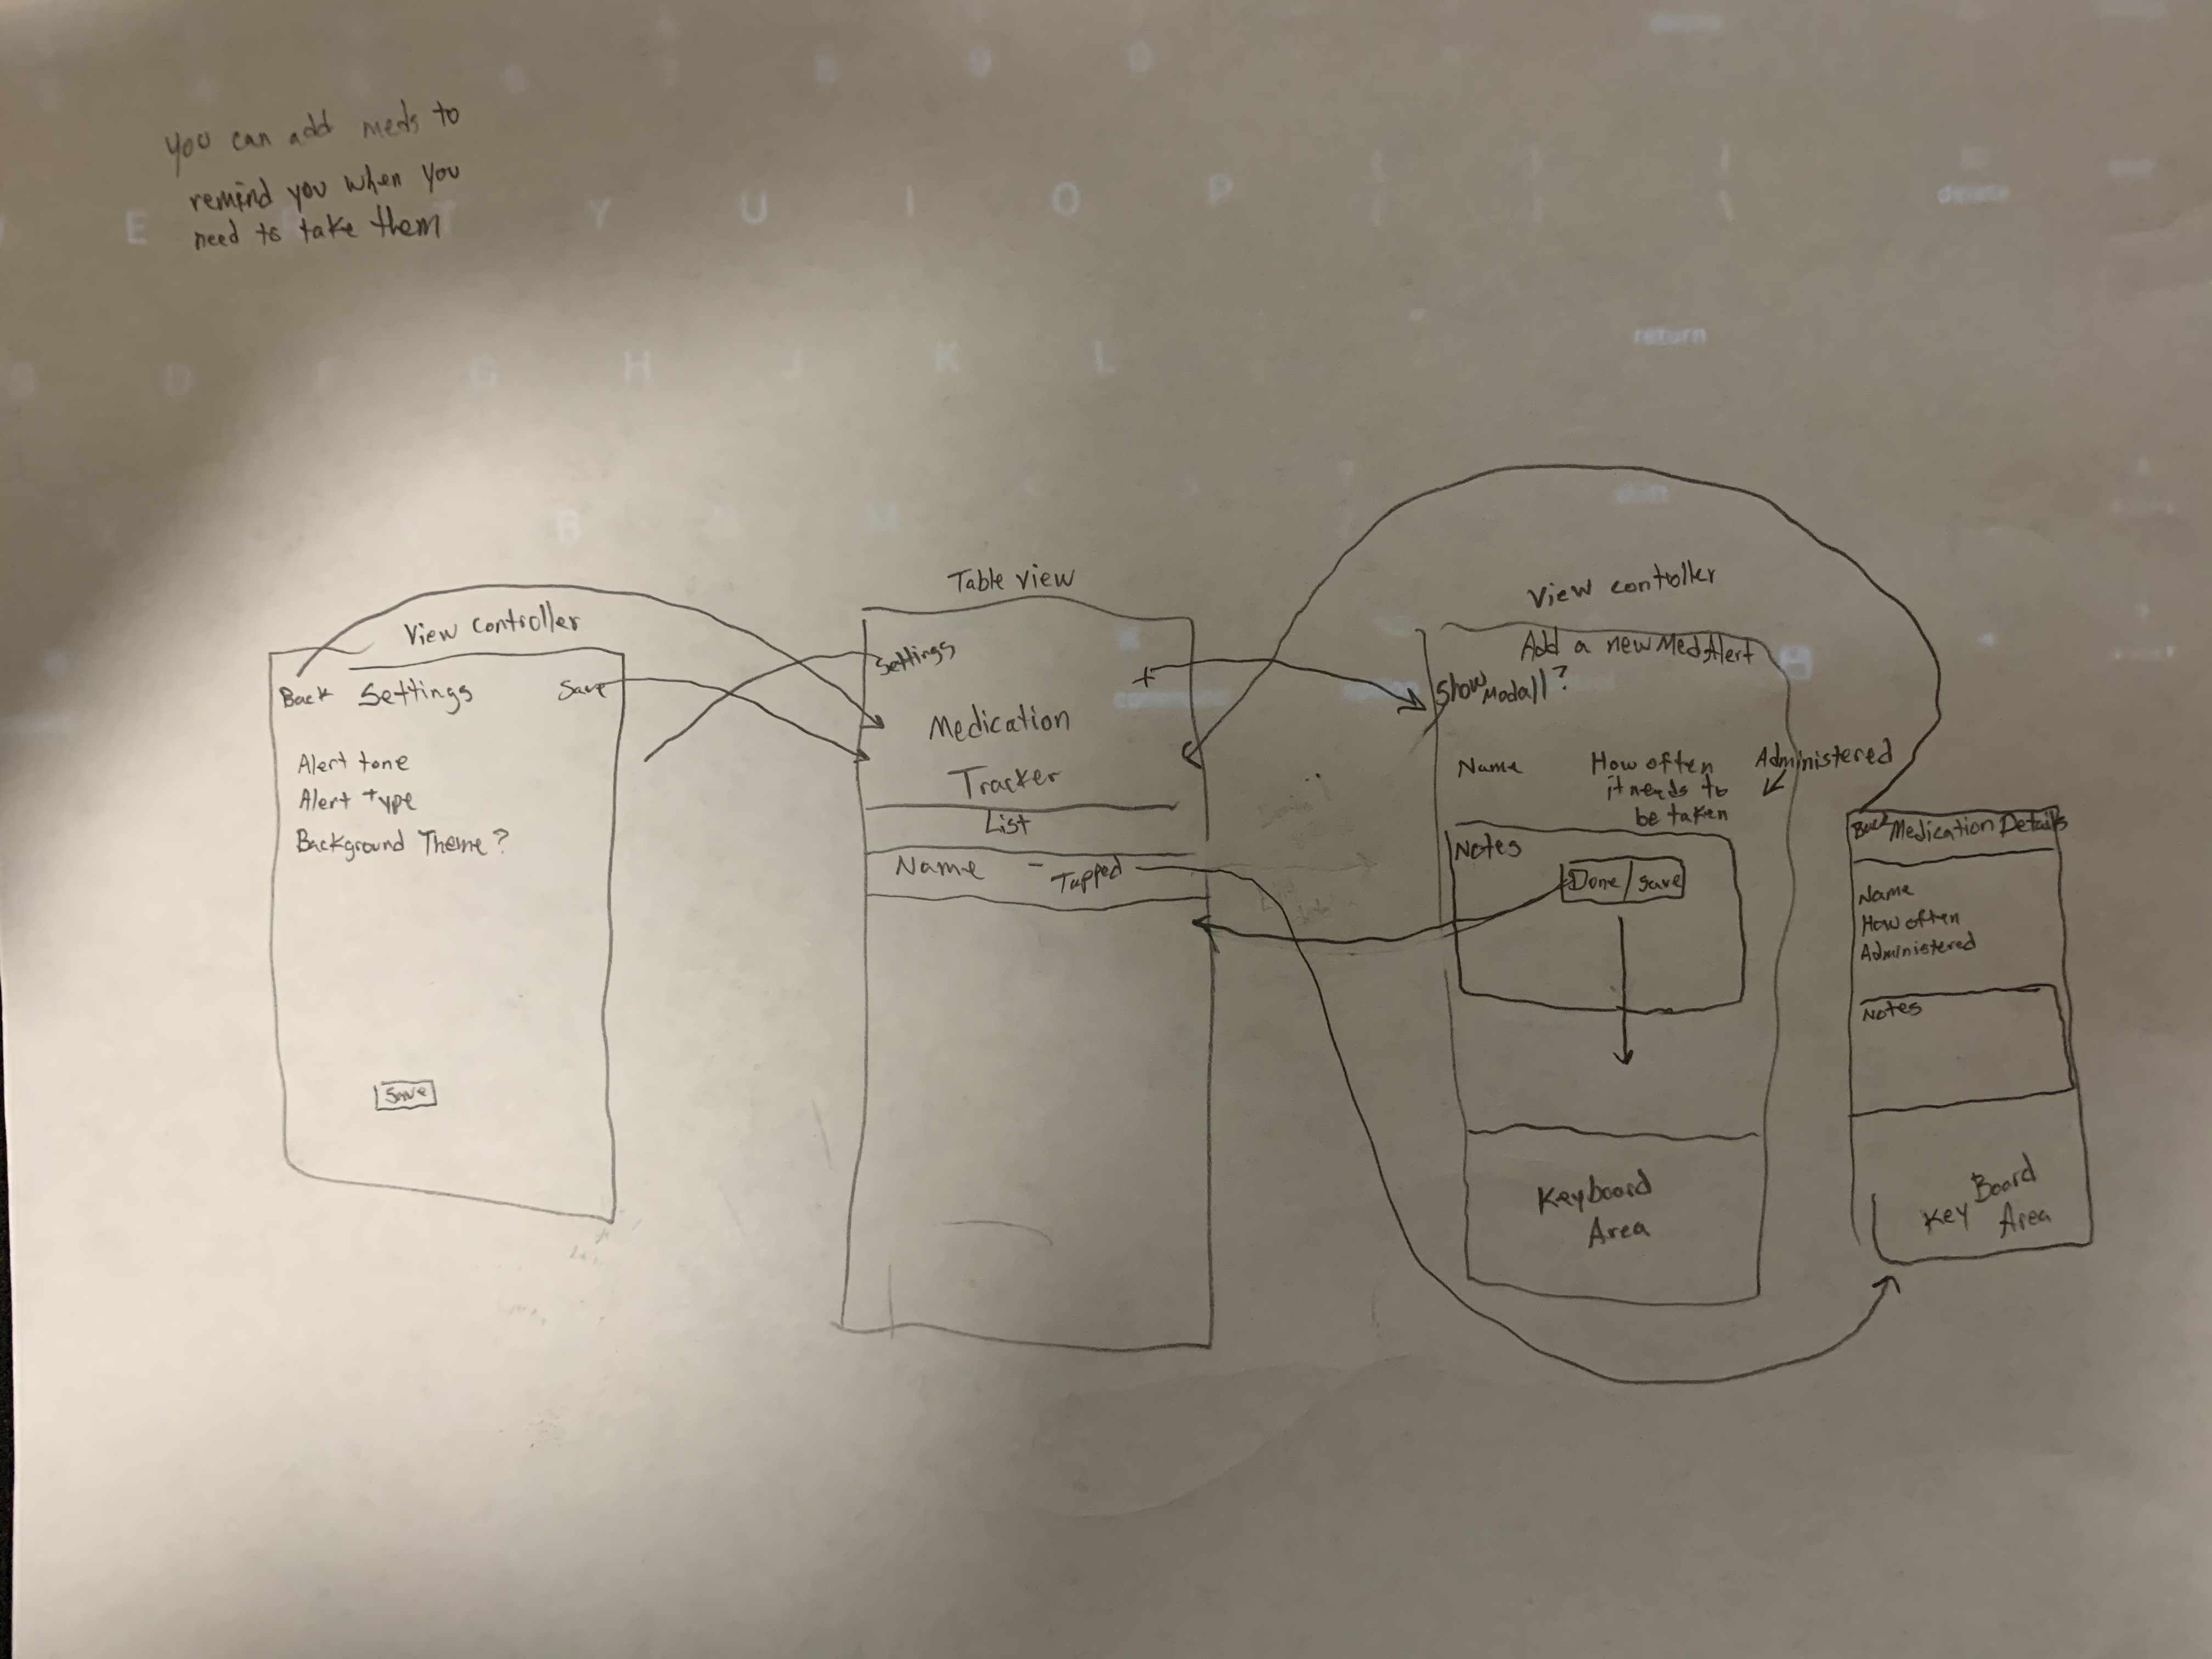 You can add meds to
remind you when you
need to take them
View controller
Back Settings Save
Alert tone
Alert type
Background Theme?
Save
Table view
Settings
+
Medication
Tracker
List
Name - Tapped
View controller
Add a new Med Alert
Show Modall?
Name
How often
it needs to
be taken
Administered
Notes
Done/save
Keyboard
Area
Back Medication Details
Name
How often
Administered
Notes
Key Board
Area
E T Y U I O P
delete
G H J K L
return
shift
B N M